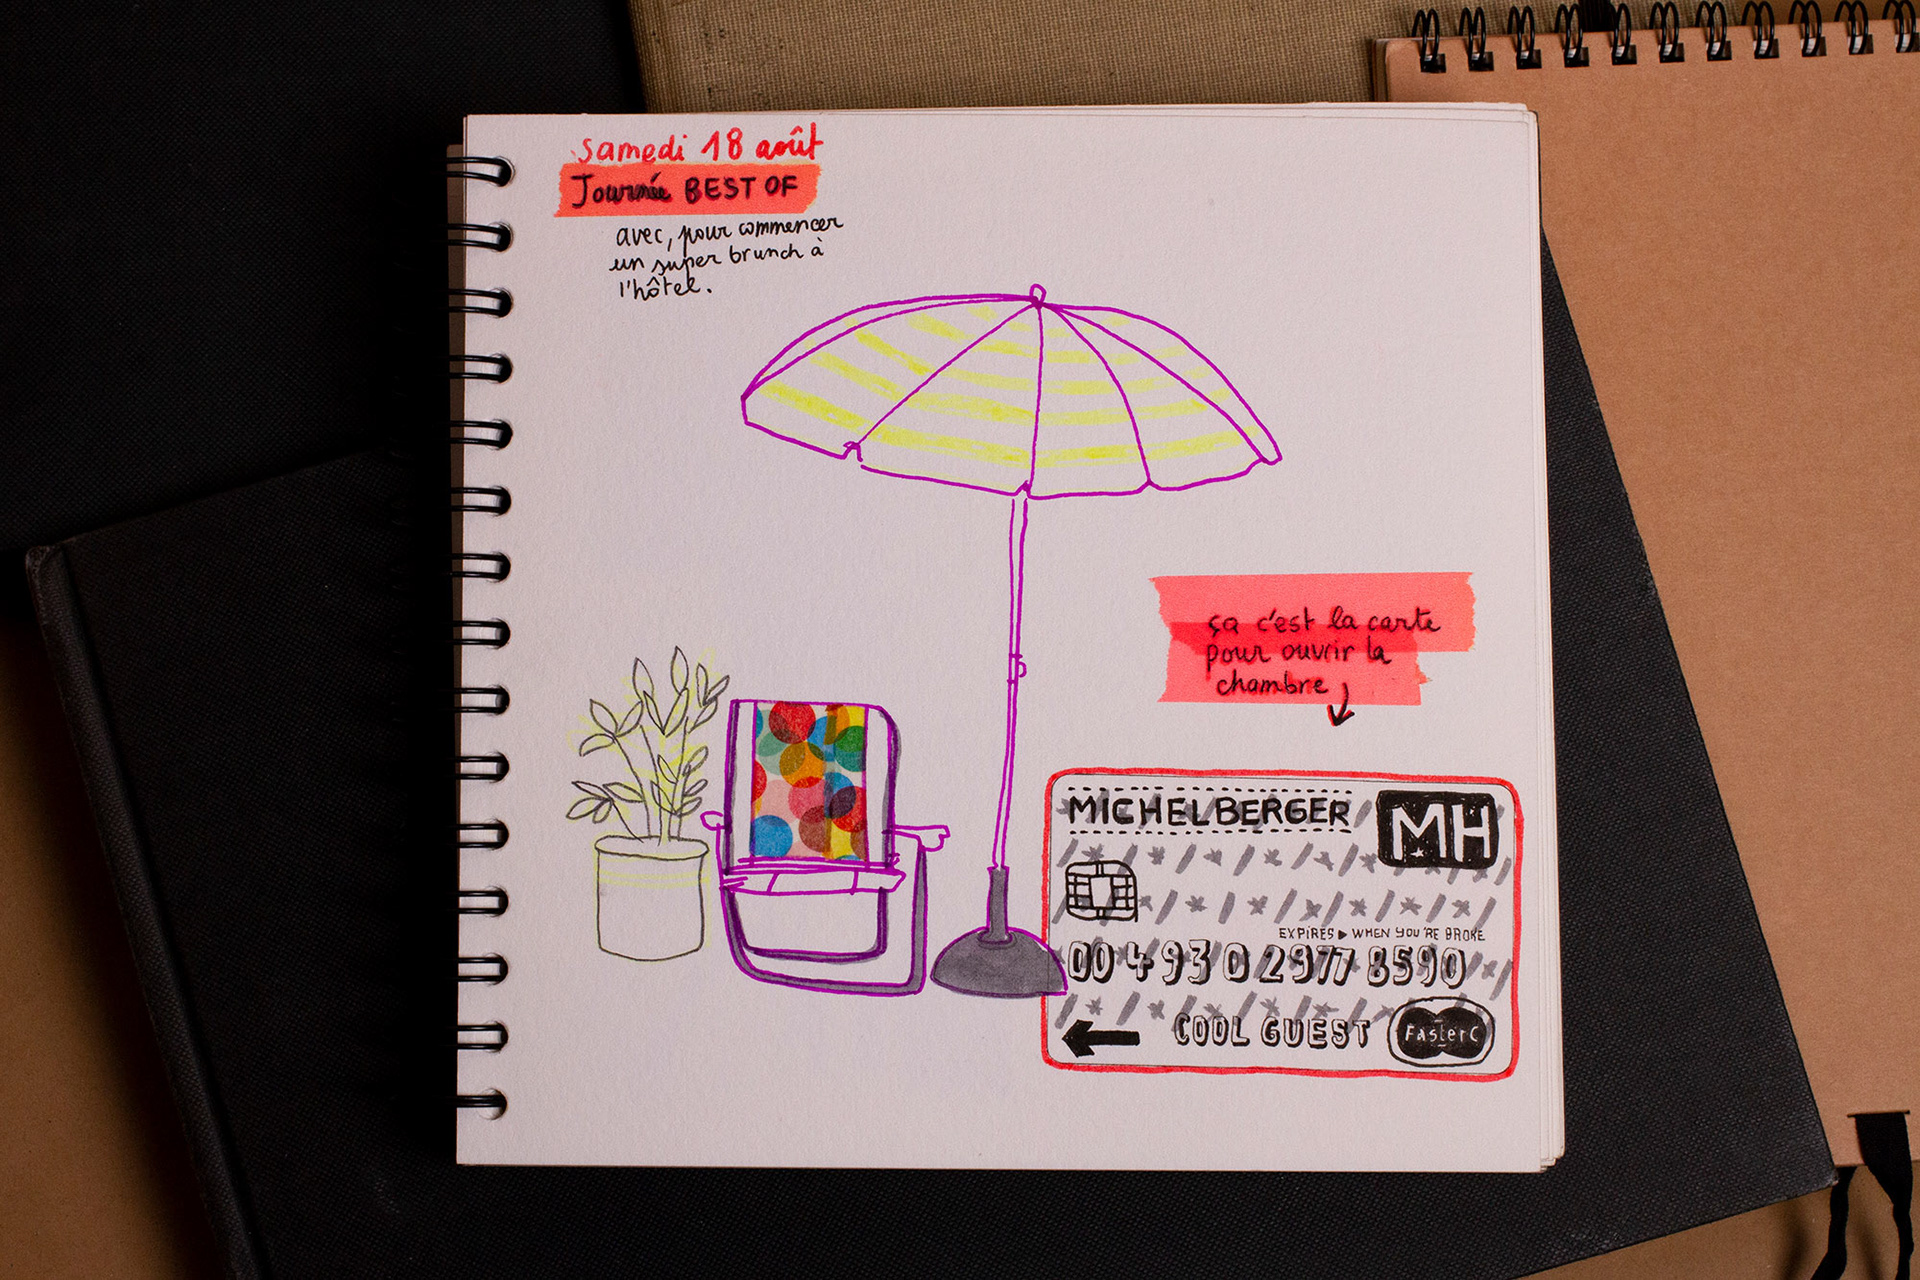 samedi 18 août
Journée BEST OF
avec, pour commencer
un super brunch à
l'hôtel.
ça c'est la carte
pour ouvrir la
chambre
MICHELBERGER
MH
EXPIRES ▶ WHEN YOU'RE BROKE
00 4 93 0 2977 8590
COOL GUEST
FasterC